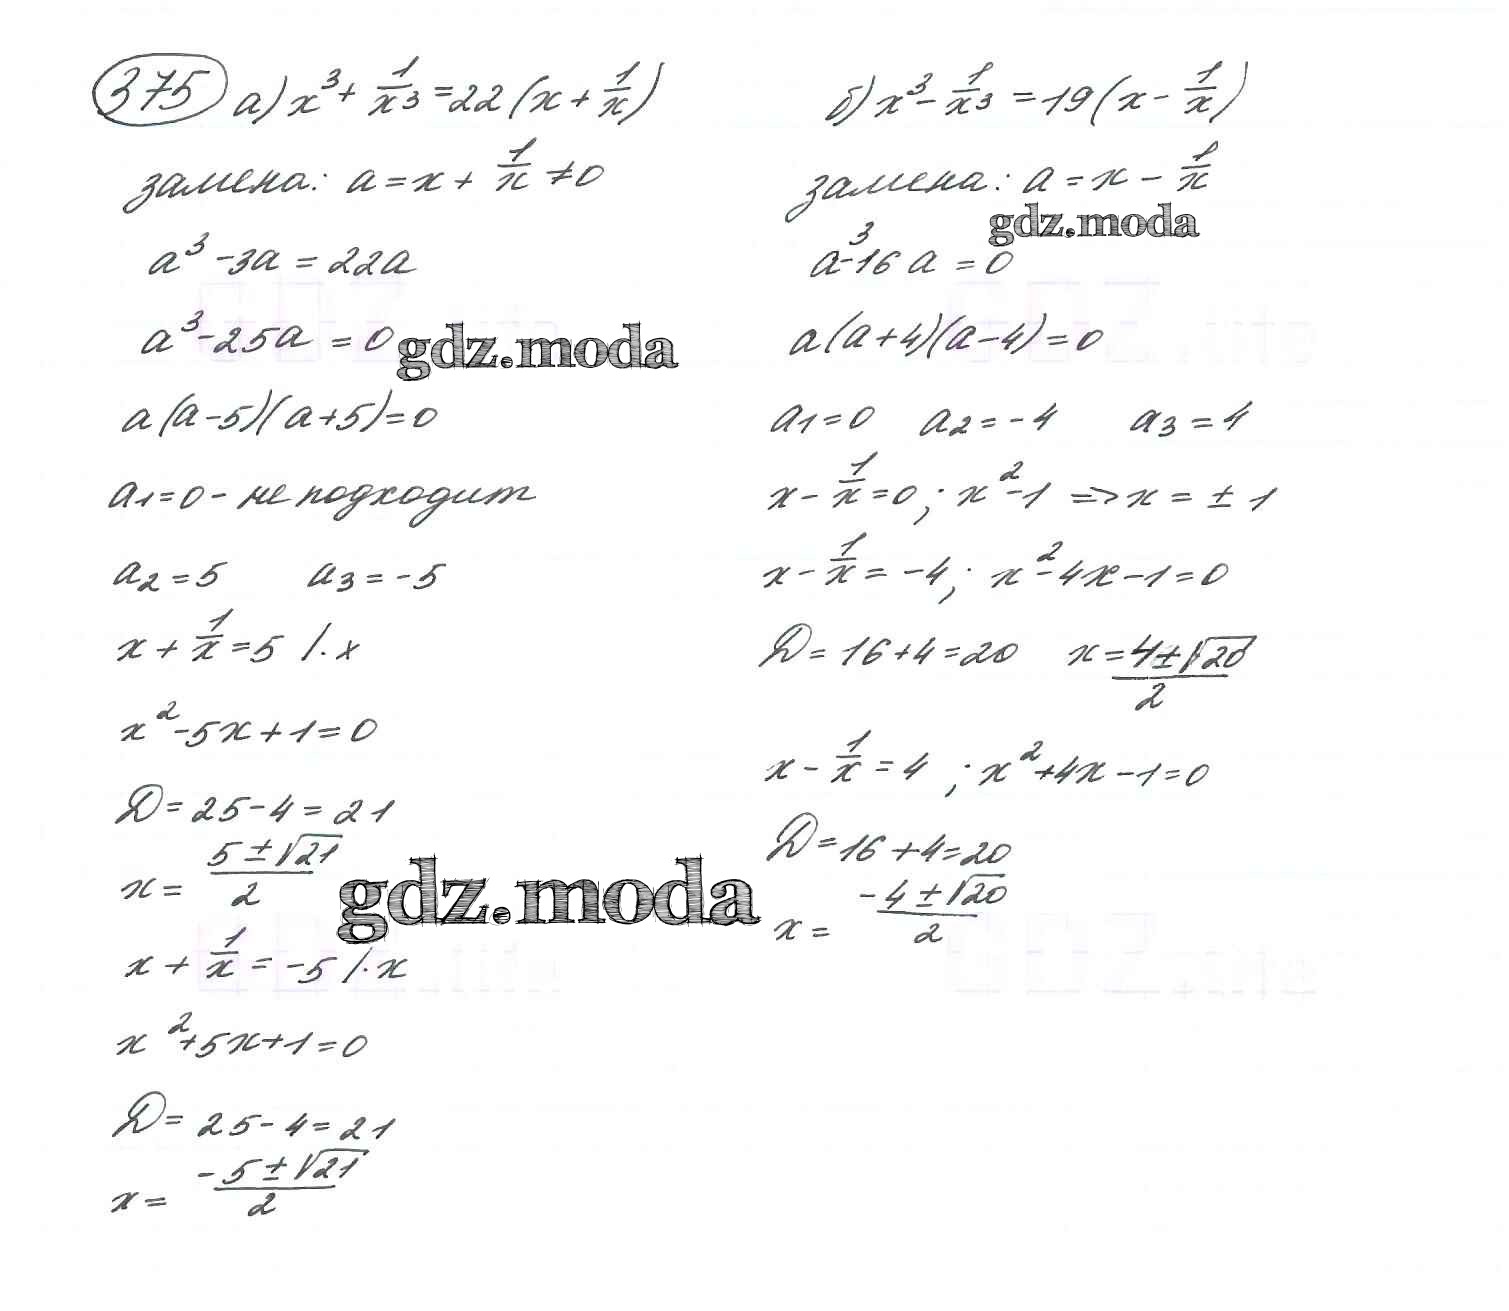 375 а) x³ + 1/x³ = 22(x + 1/x)
замена: a = x + 1/x ≠ 0
a³ - 3a = 22a
a³ - 25a = 0
gdz.moda
a(a-5)(a+5) = 0
a₁ = 0 - не подходит
a₂ = 5 a₃ = -5
x + 1/x = 5 /·x
x² - 5x + 1 = 0
D = 25 - 4 = 21
x = (5 ± √21)/2
gdz.moda
x + 1/x = -5 /·x
x² + 5x + 1 = 0
D = 25 - 4 = 21
x = (-5 ± √21)/2
б) x³ - 1/x³ = 19(x - 1/x)
замена: a = x - 1/x
gdz.moda
a³ - 16a = 0
a(a+4)(a-4) = 0
a₁ = 0 a₂ = -4 a₃ = 4
x - 1/x = 0; x² - 1 => x = ± 1
x - 1/x = -4; x² - 4x - 1 = 0
D = 16 + 4 = 20 x = (4 ± √20)/2
x - 1/x = 4; x² + 4x - 1 = 0
D = 16 + 4 = 20
x = (-4 ± √20)/2